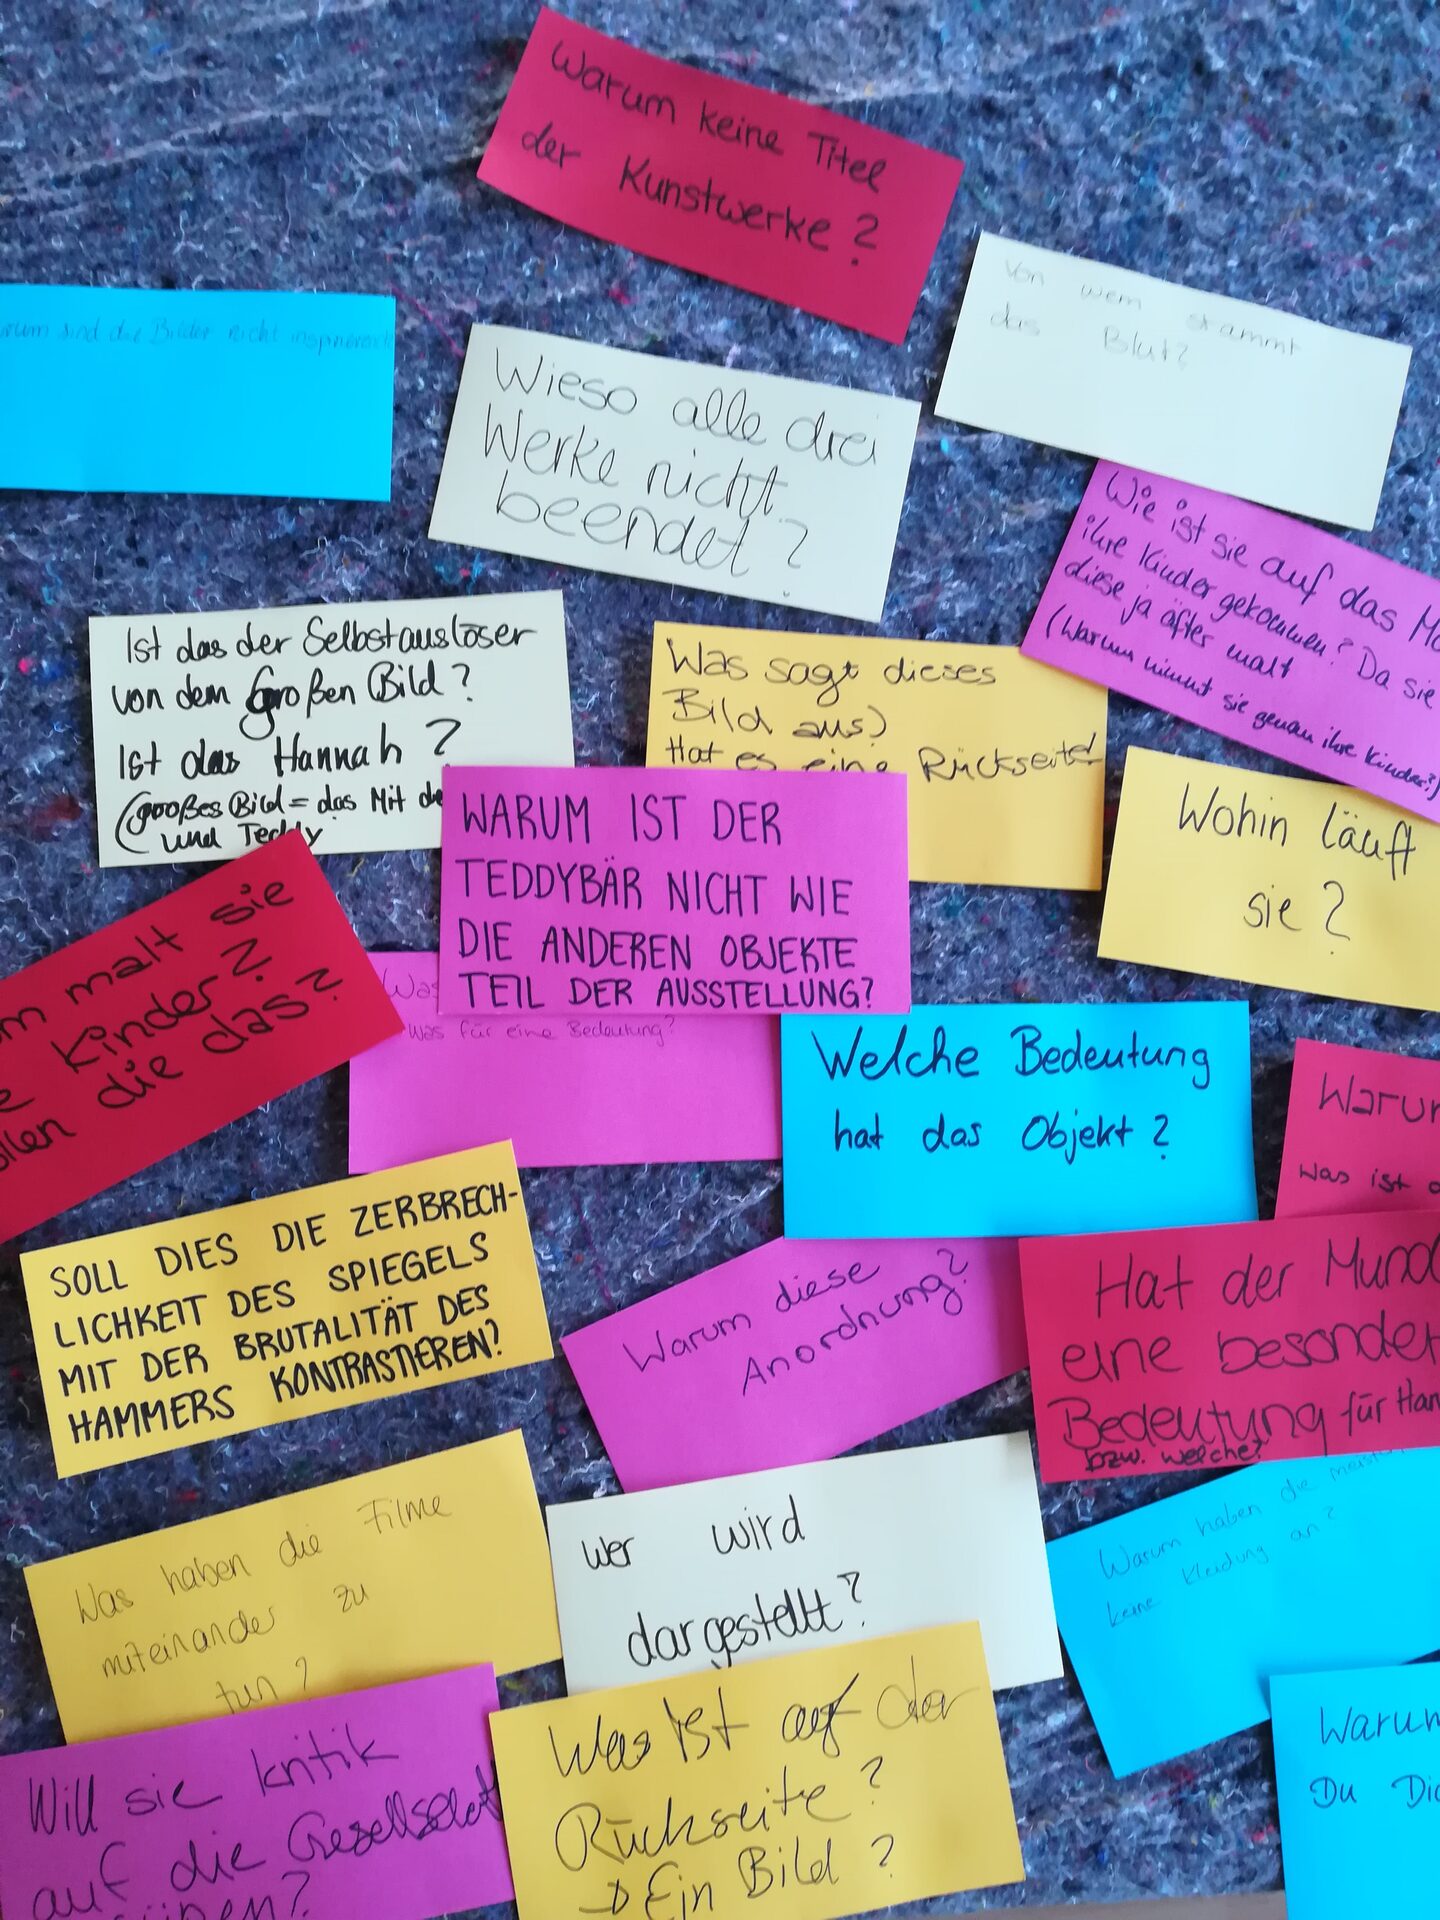 Warum keine Titel
der Kunstwerke?
Von wem stammt
das Blut?
sind die Bilder nicht
Wieso alle drei
Werke nicht
beendet?
Wie ist sie auf das
ihre Kinder gekommen? Da sie
diese ja öfter malt
(Warum nimmt sie genau ihre Kinder?)
Ist das der Selbstauslöser
von dem Großen Bild?
Ist das Hannah?
(großes Bild = das Mit
und Teddy
Was sagt dieses
Bild aus?
Hat es eine Rückseite?
Wohin läuft
sie?
WARUM IST DER
TEDDYBÄR NICHT WIE
DIE ANDEREN OBJEKTE
TEIL DER AUSSTELLUNG?
malt sie
Kinder?
die das?
was für eine Bedeutung?
Welche Bedeutung
hat das Objekt?
Warum
Was ist
SOLL DIES DIE ZERBRECH-
LICHKEIT DES SPIEGELS
MIT DER BRUTALITÄT DES
HAMMERS KONTRASTIEREN?
Warum diese
Anordnung?
Hat der Mund
eine besondere
Bedeutung für
bzw. welche?
Was haben die Filme
miteinander zu
tun?
Wer wird
dargestellt?
Warum haben die
keine Kleidung an?
Will sie kritik
auf die
Was ist auf der
Rückseite?
→ Ein Bild?
Warum
Du